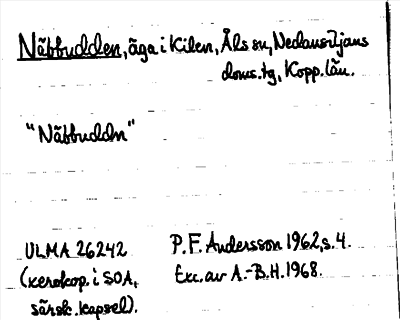 Näbbudden, äga i Kilen, Åls sn, Nedansiljans
doms.tg, Kopp. län.
"Näbbuddn"
ULMA 26242 P.F. Andersson 1962, s. 4.
(xerokop. i SOA, Exc. av A.-B.H. 1968.
särsk. kapsel).